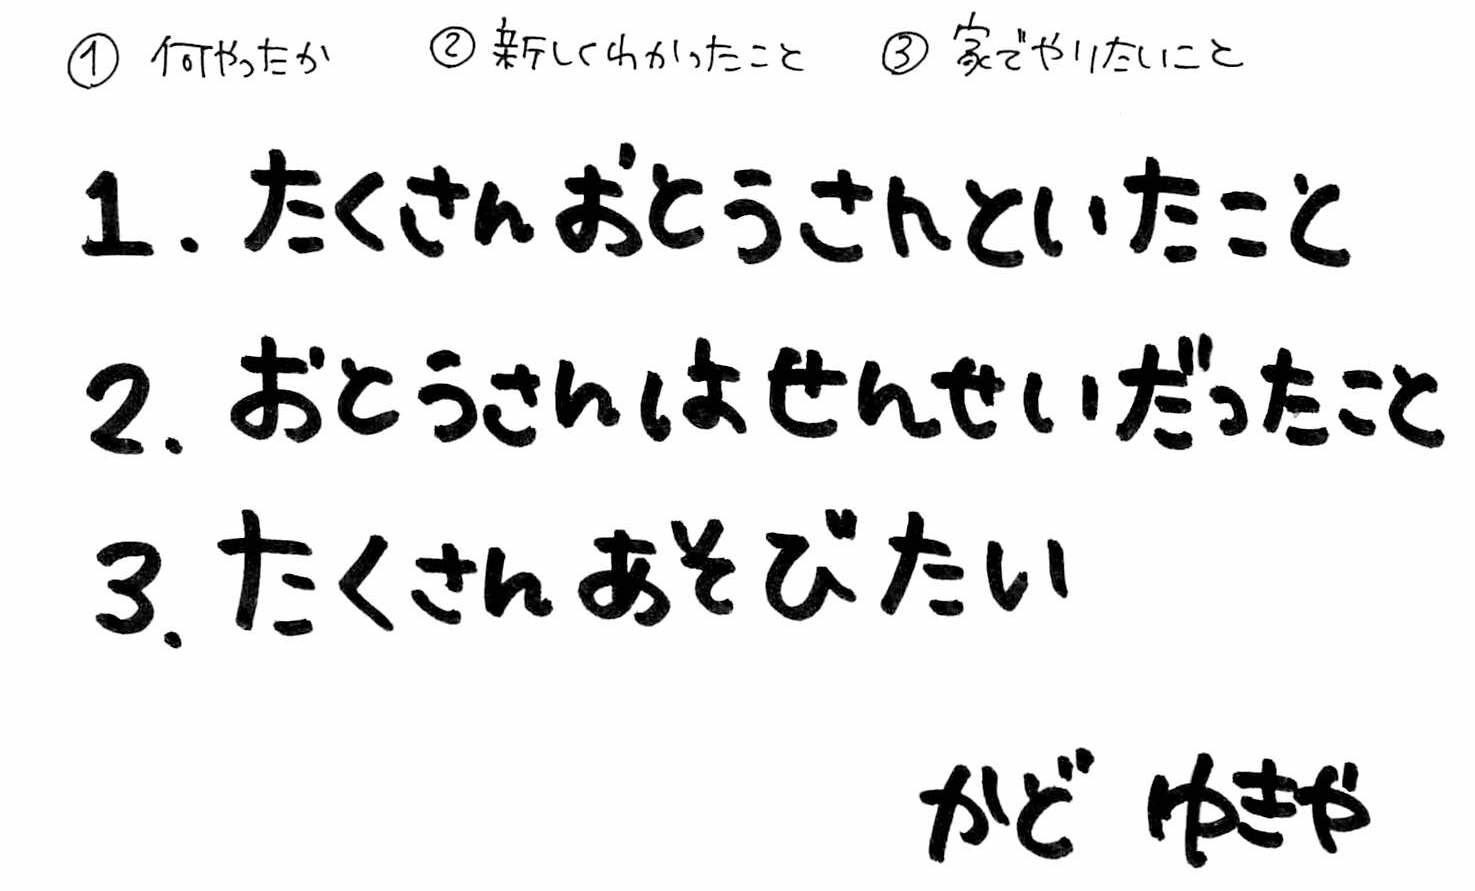 ① 何やったか ② 新しくわかったこと ③ 家でやりたいこと
1. たくさんおとうさんといたこと
2. おとうさんはせんせいだったこと
3. たくさんあそびたい
かど ゆきや